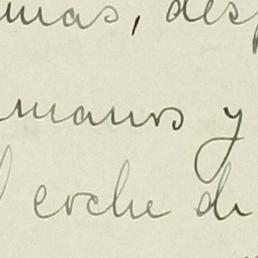 mas, desp
manos y
coche de